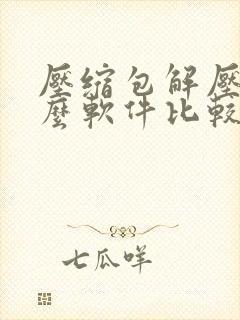 壓縮包解壓
麼軟件比較
七瓜咩